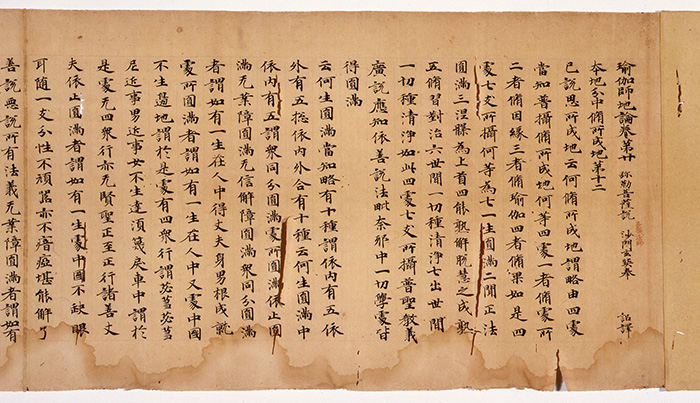 瑜伽師地論卷第廿 弥勒菩薩說 沙門玄奘奉 詔譯
本地分中脩所成地第十二
已說思所成地云何脩所成地謂略由四處
當知普攝脩所成地何等四處一者脩處所
二者脩因緣三者脩瑜伽四者脩果如是四
處七支所攝何等為七一生圓滿二聞正法
圓滿三涅槃為上首四能熟解脫慧之成熟
五脩習對治六世間一切種清淨七出世間
一切種清淨如此四處七支所攝普聖教義
廣說應知依善說法毗奈耶中一切學處皆
得圓滿
云何生圓滿當知略有十種謂依內有五依
外有五捴依內外合有十種云何生圓滿中
依內有五謂衆同分圓滿處所圓滿依止圓
滿无業障圓滿无信解障圓滿衆同分圓滿
者謂如有一生在人中得丈夫身男根成就
處所圓滿者謂如有一生在人中又處中國
不生邊地謂於是處有四衆行謂苾芻苾芻
尼近事男近事女不生達須篾戾車中謂於
是處无四衆行亦无賢聖正至正行諸善丈
夫依止圓滿者謂如有一生處中國不缺眼
耳隨一支分性不頑嚚亦不瘖瘂堪能解了
善說惡說所有法義无業障圓滿者謂如有